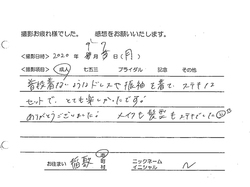 撮影お疲れ様でした。 感想をお願いいたします。
＜撮影日時＞ 2020年 月 日（月）
＜撮影項目＞ 成人 七五三 ブライダル 記念 その他
普段着ないようなドレスや振袖を着て、ステキな
セットで、とても楽しかったです。
ありがとうございました。 メイクも髪型もステキでした
お住まい 稲敷 市 町 村 ニックネーム イニシャル N